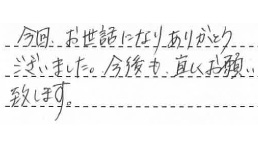 今回、お世話になりありがとう
ございました。今後も、宜しくお願い
致します。